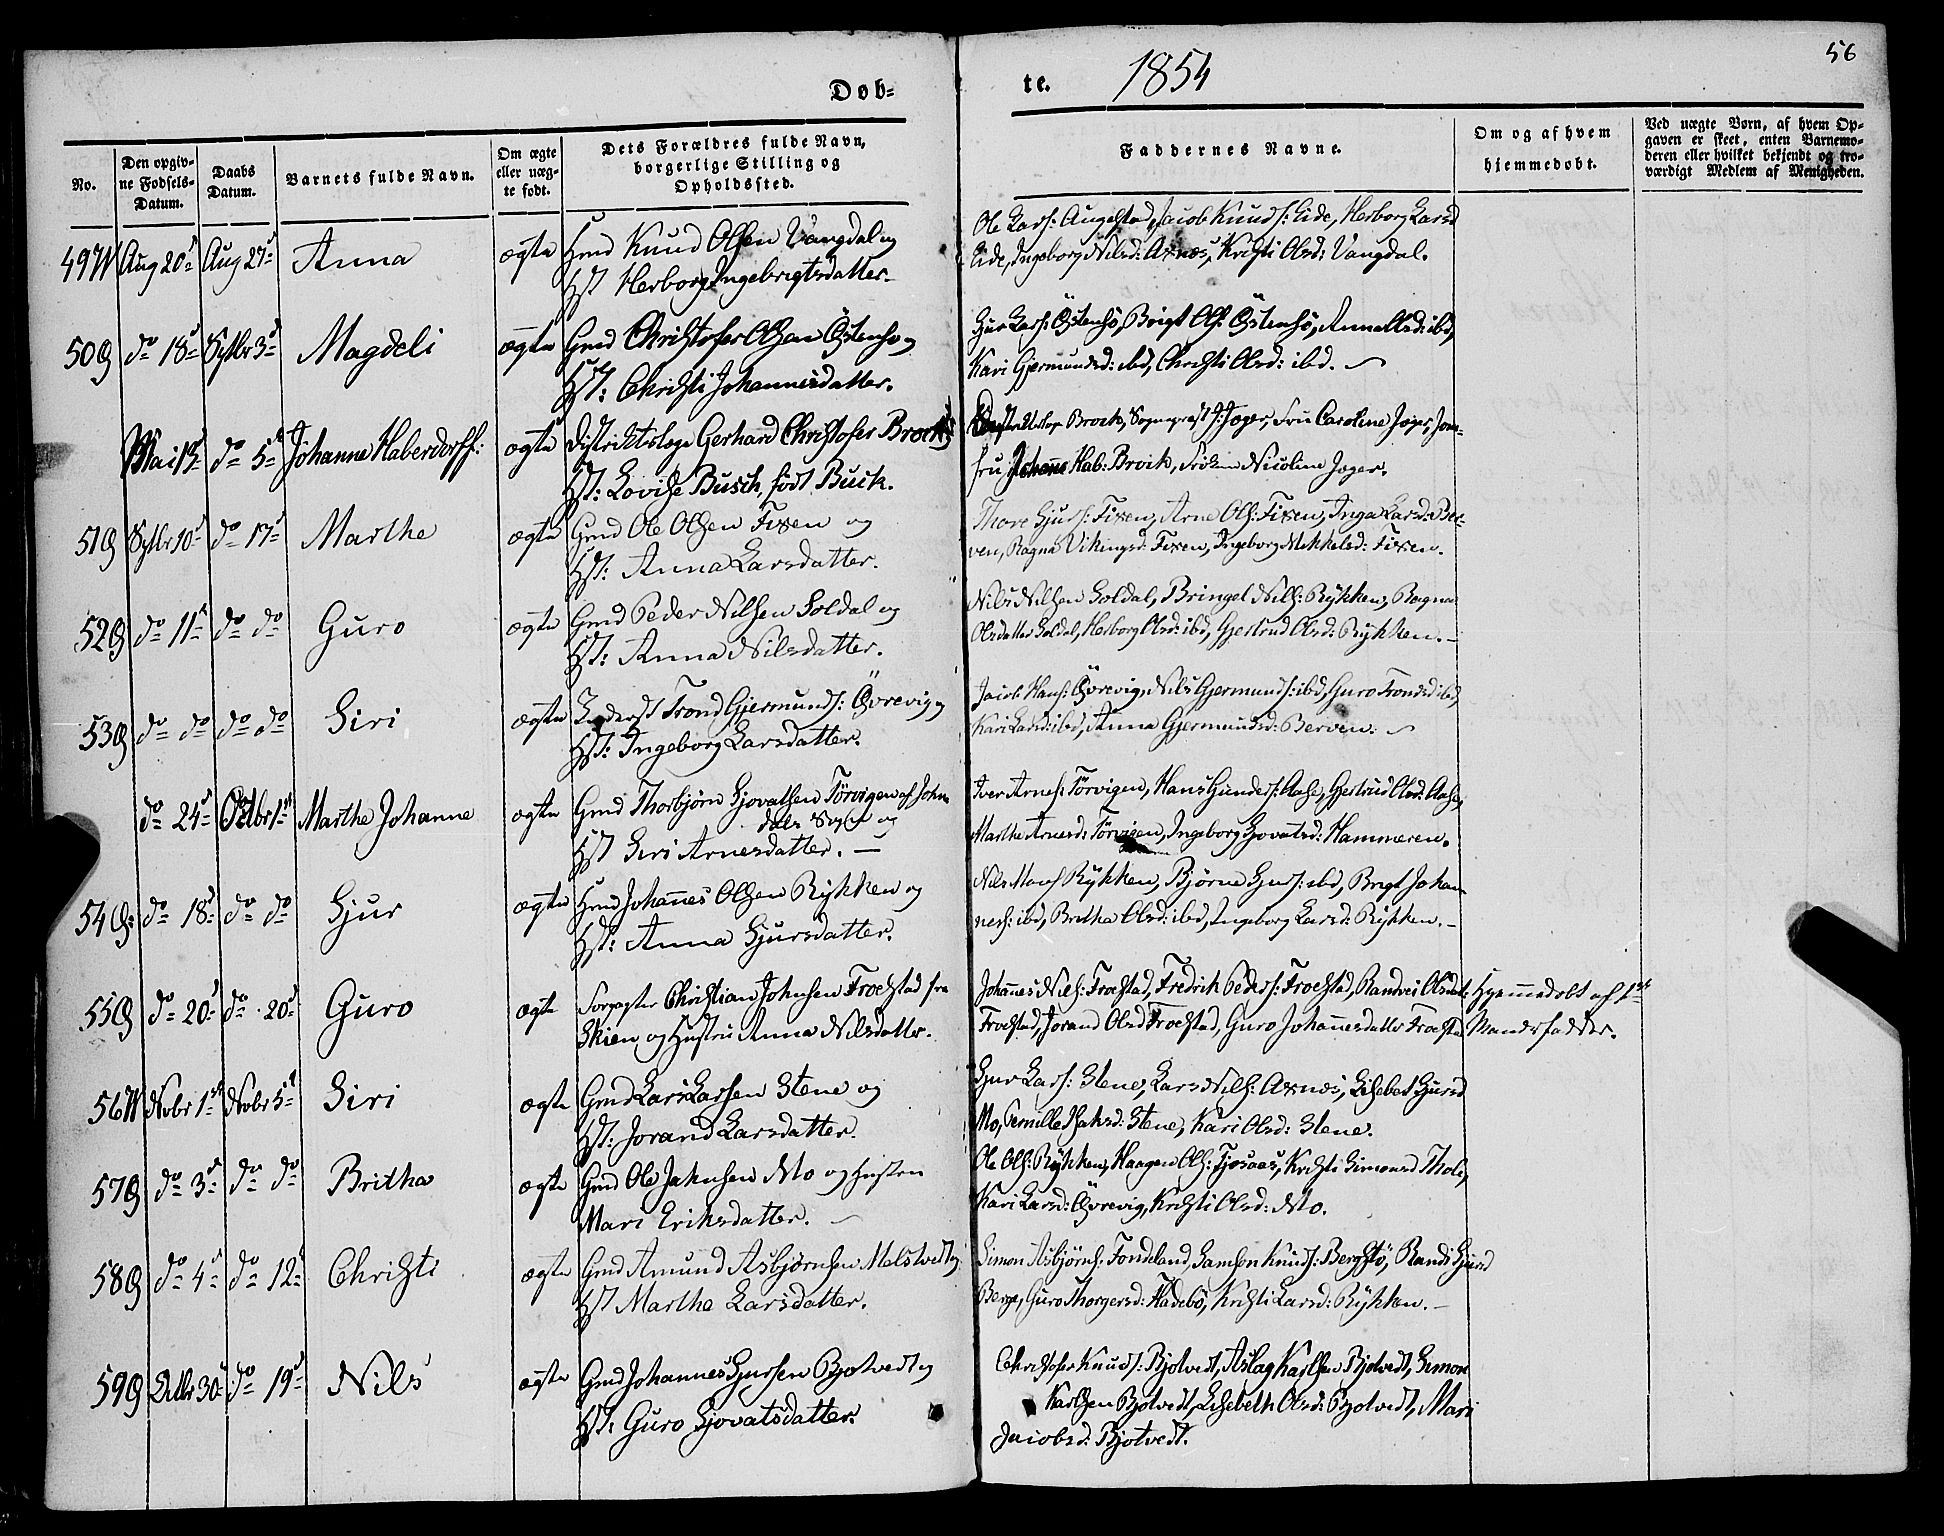 56
Døb-
te. 1854
No.
Den opgiv-
ne Fødsels-
Datum.
Daabs
Datum.
Barnets fulde Navn.
Om ægte
eller uæg-
te født.
Dets Forældres fulde Navn,
borgerlige Stilling og
Opholdssted.
Faddernes Navne.
Om og af hvem
hjemmedøbt.
Ved uægte Børn, af hvem Op-
gaven er skeet, enten Barnemo-
deren eller hvilket bekjendt og tro-
værdigt Medlem af Menigheden.
49 Aug 20 Aug 27 Anna ægte Knud Olsen Vangdal og
Hst Herborg Ingebrigtsdatter.
Ole Lars: Augestad, Jacob Knuds: Eide, Herborg Larsd
Eide, Ingeborg Nilsd: Axnæs, Kristi Olsd: Vangdal.
50 do 18 Septbr 3 Magdeli ægte Gmd Christofer Olsen Östensö og
Hst: Christi Johannesdatter.
Lars: Östensö, Brigt Ols: Östensö, Anna Olsd: ibd,
Kari Gjermundsd: ibd, Christi Olsd: ibd.
Mai 13 do 5 Johanne Haberdorff: ægte Districtslæge Gerhard Christofer Brock
Hst: Lovise Busch, født Buck.
Brock, Sogneprest J: Jæger, Fru Caroline Jæger, Jom-
fru Johanne Hab: Brock, Frøken Nicoline Jæger.
51 Septbr 10 do 17 Marthe ægte Gmd Ole Olsen Fixen og
Hst: Anna Larsdatter.
Thore Sjurs: Fixen, Arne Ols: Fixen, Inga Larsd: Ber-
ven, Ragna Vikingsd: Fixen, Ingeborg Mikkelsd: Fixen.
52 do 11 do do Guro ægte Gmd Peder Nilsen Soldal og
Hst: Anna Nilsdatter.
Nils Nilsen Soldal, Bringel Nils: Rykken, Ragna
Olsdatter Soldal, Herborg Olsd: ibd, Gjertrud Olsd: Rykken.
53 do do do do Siri ægte Trond Gjermunds: Övrevig og
Hst: Ingeborg Larsdatter.
Jacob Hans: Övrevig, Nils Gjermunds: ibd, Guro Trondsd ibd,
Kari Larsd: ibd, Anna Gjermundsd: Berven.
do 24 Octbr 1 Marthe Johanne ægte Gmd Thorbjørn Sjovatsen Törvigen af Jon-
dals Sogn og
Hst Siri Arnesdatter.
Iver Arnes: Törvigen, Hans Gunders: Aase, Gjertrud Olsd: Aase,
Marthe Arnesd: Törvigen, Ingeborg Sjovatsd: Hammeren.
54 do 18 do do Sjur ægte Johannes Olsen Rykken og
Hst: Anna Sjursdatter.
Nils Mons Rykken, Bjørne Sjurs: ibd, Brigt Johan-
nes: ibd, Britha Olsd: ibd, Ingeborg Larsd: Rykken.
55 do 20 do 20 Guro ægte Christian Johnsen Froestad fra
Skien og Hustru Anna Nilsdatter.
Johannes Nils: Froestad, Fredrik Peders: Froestad, Randvei Olsdat:
Froestad, Jorand Olsd Froestad, Guro Johannesdatter Froestad
Hjemmedøbt af 1ste
Mandsfadder.
56 Novbr 1 Novbr 5 Siri ægte Gmd Lars Larsen Stene og
Hst: Jorand Larsdatter.
Sjur Lars: Stene, Lars Nils: Axnæs, Lisebet Sjursd
Mo, Pernille Isaksd: Stene, Kari Olsd: Stene.
57 do 3 do do Britha ægte Gmd Ole Johnsen Mo og Hustru
Mari Eriksdatter.
Ole Ols: Rykken, Haagen Ols: Fjosaas, Kristi Simonsd Thole,
Kari Larsd: Övrevig, Kristi Olsd: Mo.
58 do 4 do 12 Christi ægte Gmd Amund Asbjørnsen Melstvedt og
Hst Marthe Larsdatter.
Simon Asbjörns: Fondeland, Samson Knuds: Bergstö, Randi Sjursd
Berge, Guro Thorgersd: Fladebö, Kristi Larsd: Rykken.
59 Octbr 30 do 19 Nils ægte Gmd Johannes Sjursen Bjotvedt og
Hst: Guro Sjovatsdatter.
Christofer Knuds: Bjotvedt, Aslag Karlsen Bjotvedt, Simon
Karlsen Bjotvedt, Lisebeth Olsd: Bjotvedt, Mari
Jacobsd: Bjotvedt.